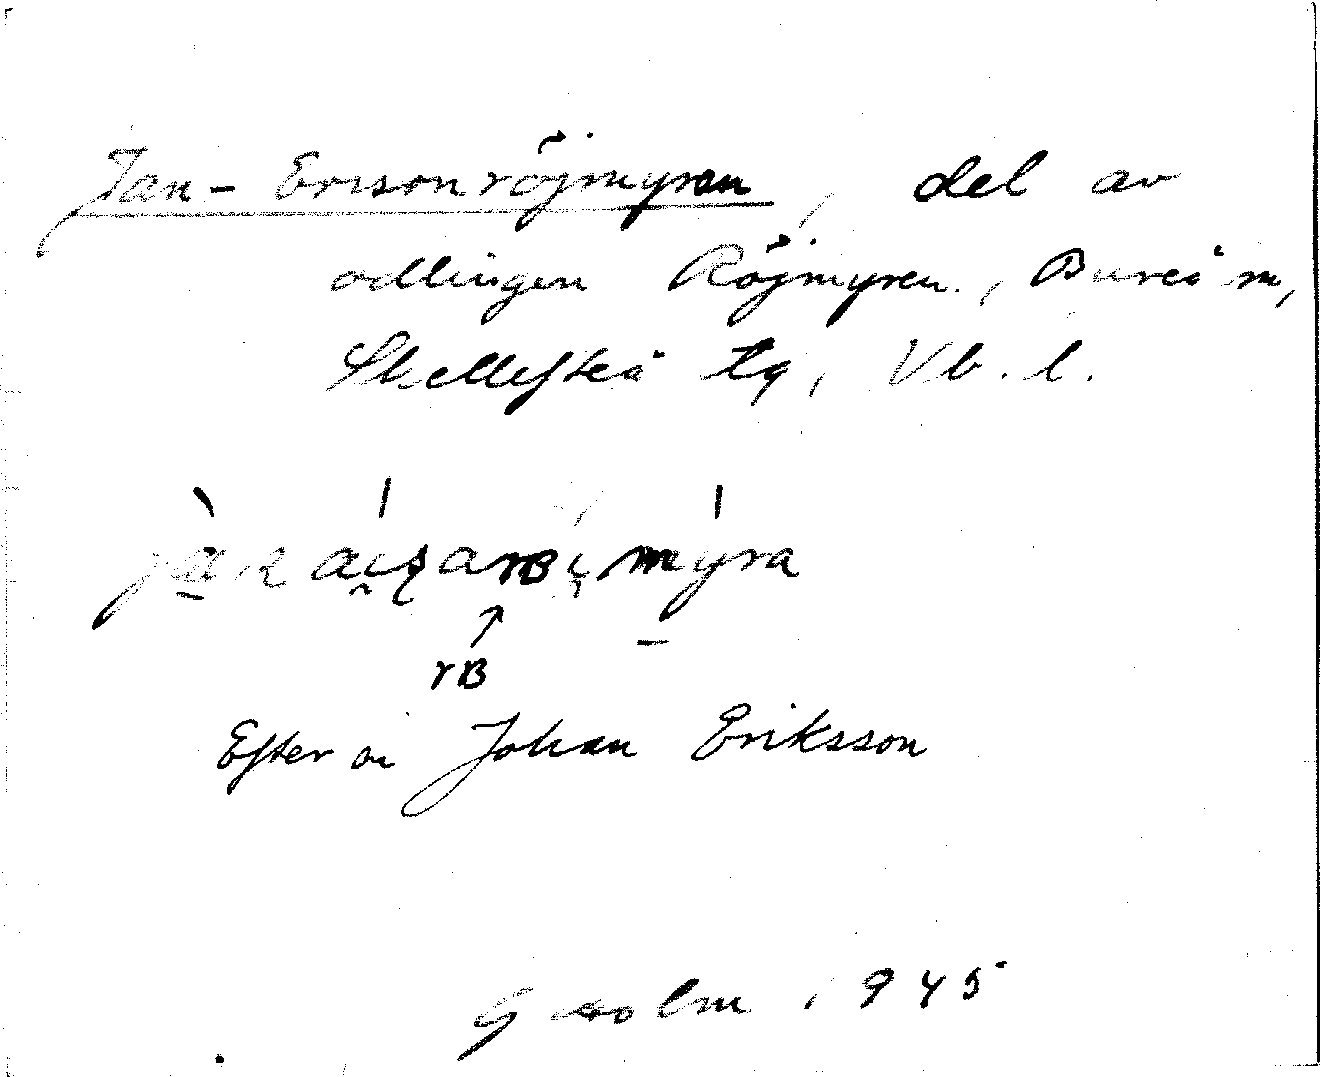 Jan-Ersonröjmyren, del av
odlingen Röjmyren., Bureå sn,
Skellefteå tg, Vb. l.
rB
Efter om Johan Eriksson
G Holm 1945